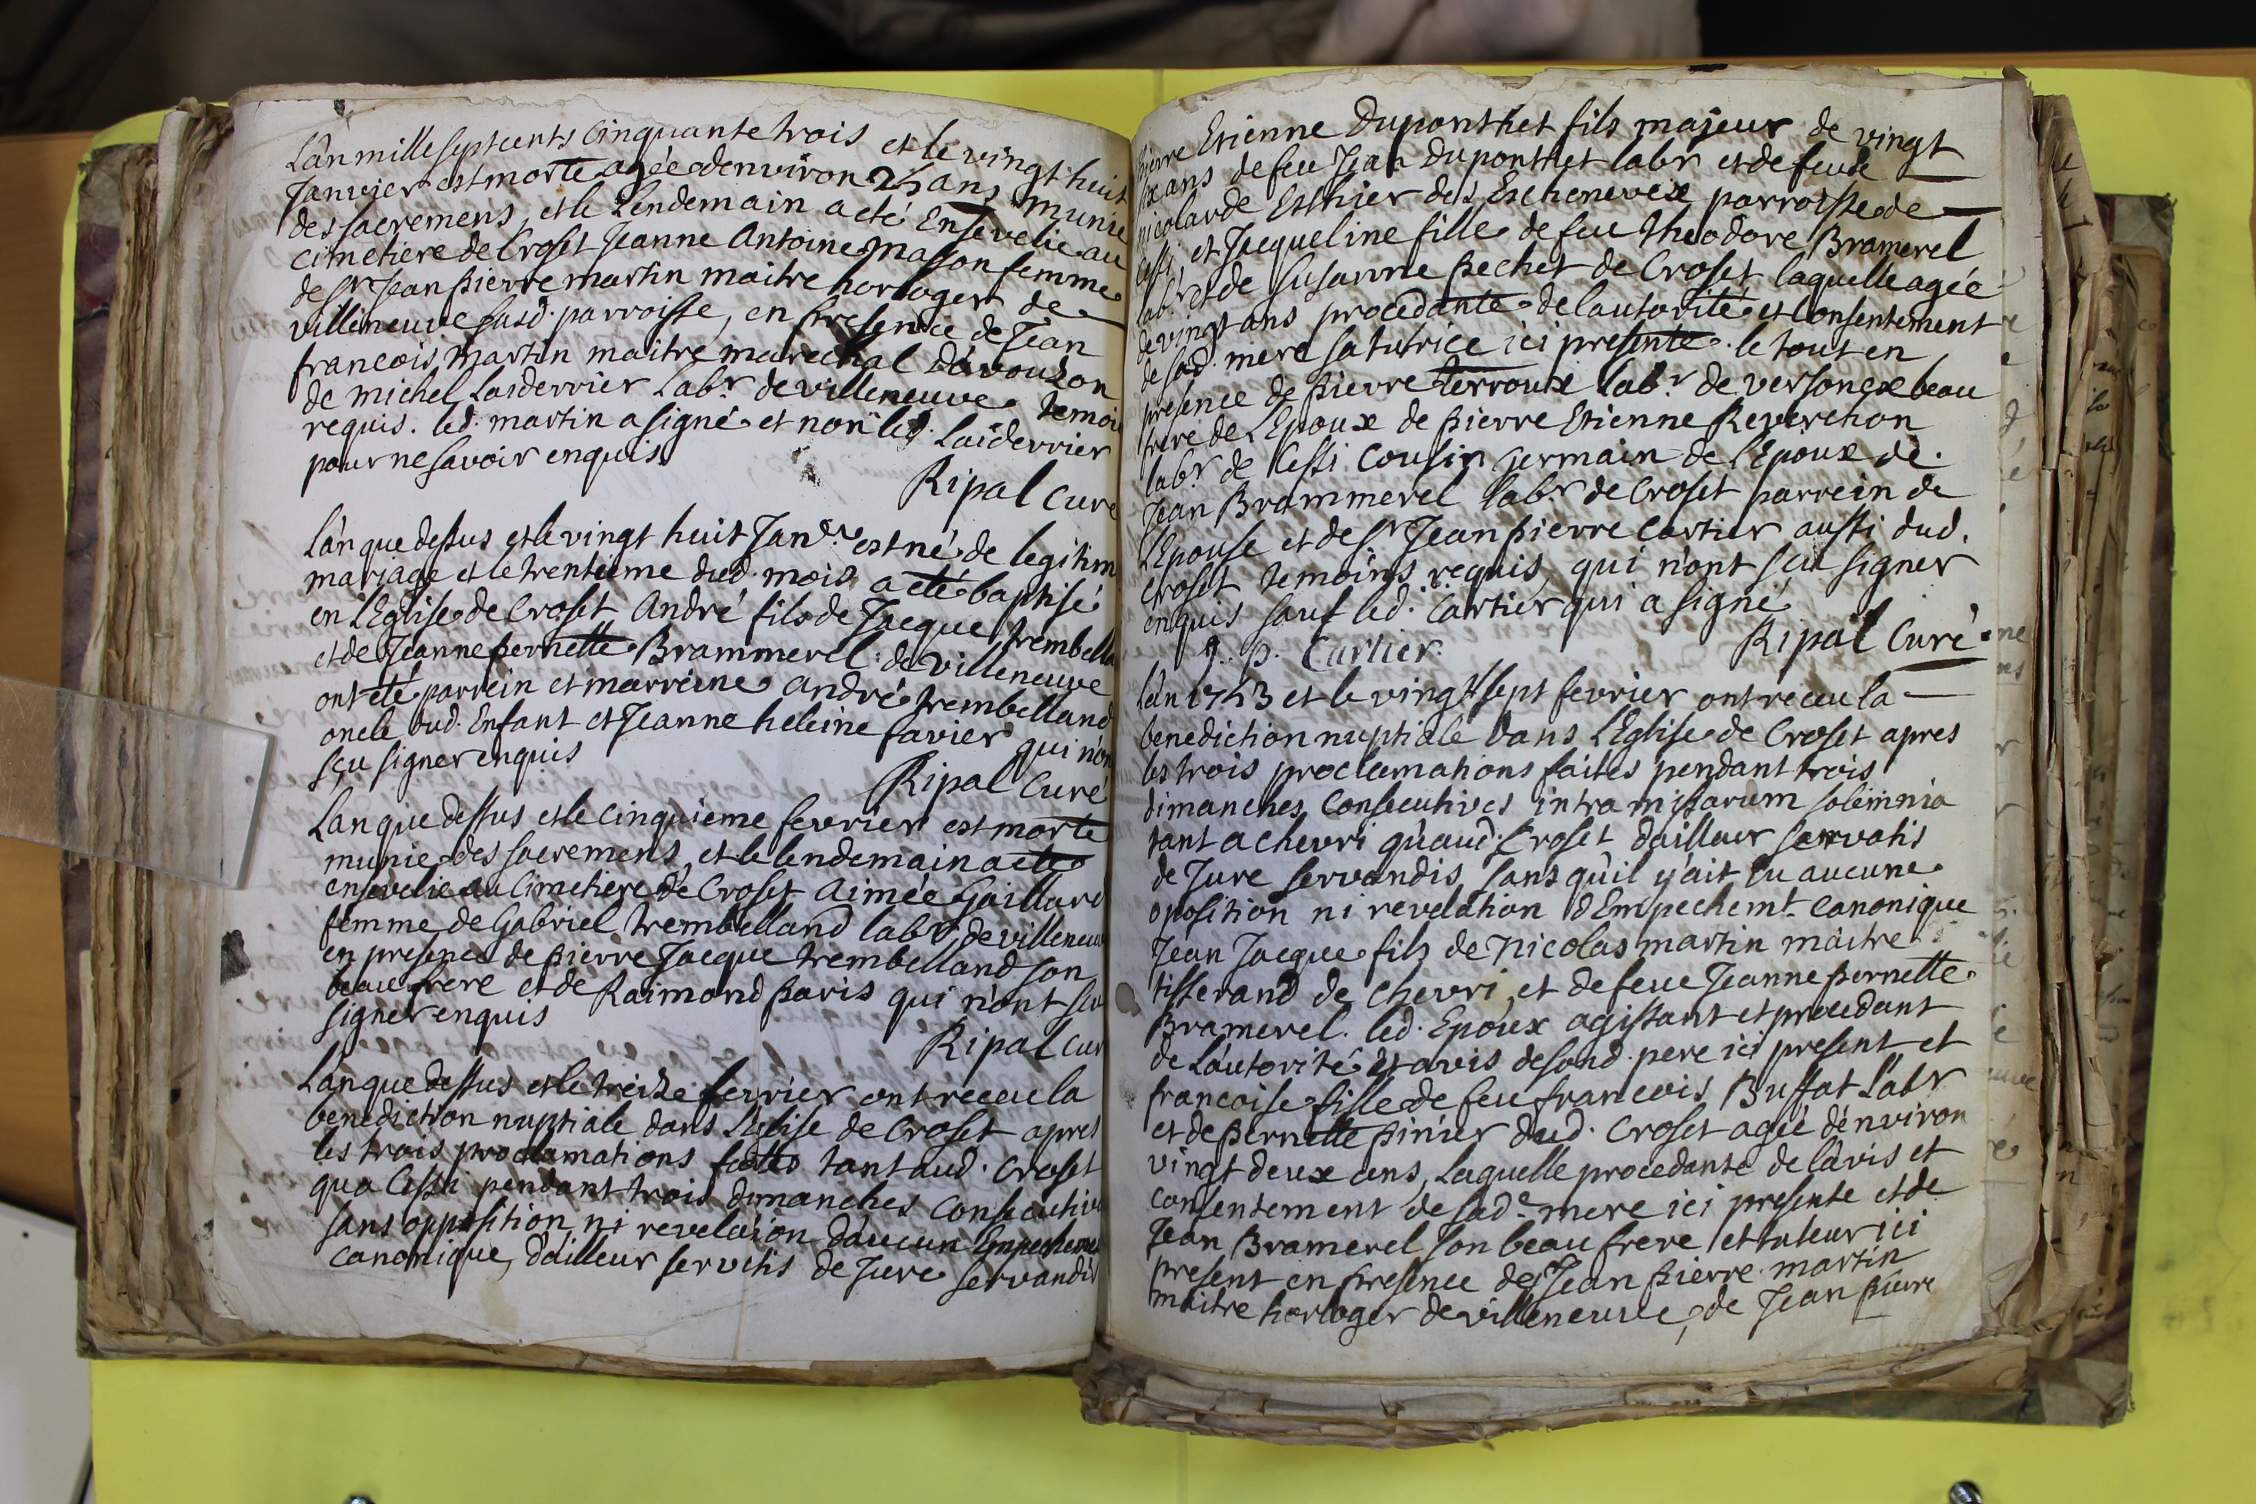 L'an mille sept cents cinquante trois et le vingt huit
Janvier est morte agée d'environ 25 ans munie
des sacremens, et le lendemain a eté Ensevelie au
cimetiere de Croset Jeanne Antoine Masson femme
de Sr Jean pierre martin maitre horloger de
villeneuve susd. parroisse, en presence de Jean
francois Martin maitre marechal d'avouzon
de michel Laiderrier Labr. de villeneuve temoi
requis. led. martin a signé et non led. Laiderrier
pour ne savoir enquis.
Ripal Curé
L'an que dessus et le vingt huit Janvr. est né de legitim
mariage et le trentieme dud. mois a eté baptisé
en L'Eglise de Croset André fils de Jacque trembella
et de Jeanne pernette Brammerel de villeneuve
ont eté parrein et marreine andré trembelland
oncle dud. Enfant et Jeanne heleine favier qui n'on
sçu signer enquis
Ripal Curé
L'an que dessus et le cinquieme fevrier est morte
munie des sacremens, et le lendemain a eté
ensevelie au cimetiere de Croset Aimée Gaillard
femme de Gabriel trembelland labr. de villeneuv
en presence de pierre Jacque trembelland son
beau frere et de Raimond paris qui n'ont scu
signer enquis
Ripal cur
L'an que dessus et le treize fevrier ont receu la
benediction nuptiale dans L'eglise de Croset apres
les trois proclamations faites tant aud. Croset
qu'a Cessi pendant trois dimanches consecutive
sans opposition ni revelaion d'aucun Empecheme
canonique, d'ailleur servatis de Jure servandis
pierre Etienne Duponthet fils majeur de vingt
six ans de feu Jean Duponthet labr et de feue
nicolarde Esthier des Eschenevex parroisse de
Cessi, et Jacqueline fille de feu theodore Bramerel
labr. et de Susanne pechet de Croset, laquelle agée
de vingt ans procedante de l'autorité et Consentement
de sad. mere sa tutrice ici presente. le tout en
presence de pierre terroux labr. de versonex beau
frere de L'Epoux de pierre Etienne Reverchon
labr. de Cessi Cousin germain de l'Epoux de
Jean Brammerel labr. de Croset parrein de
L'Epouse et de Sr Jean pierre Cartier aussi dud.
croset temoins requis, qui n'ont scu signer
enquis sauf led. Cartier qui a signé
Ripal Curé
J. p. Cartier
L'an 1753 et le vingt sept fevrier ont receu la
benediction nuptiale dans L'Eglise de Croset apres
les trois proclamations faites pendant trois
dimanches Consecutives intra missarum solemnia
tant a chevri qu'aud. Croset d'ailleur servatis
de Jure servandis sans qu'il y ait eu aucune
oposition ni revelation d'Empechemt. canonique
Jean Jacque fils de Nicolas martin maitre
tisserand de chevri, et de feue Jeanne pernette
Bramerel. led. Epoux agissant et procedant
de L'autorité et avis de sond. pere ici present et
francoise fille de feu francois Buffat Labr
et de pernette pinier dud. Croset agée d'environ
vingt deux ans, Laquelle procedante de l'avis et
consentement de sade. mere ici presente et de
Jean Bramerel son beau frere et tuteur ici
present en presence de Sr Jean pierre martin
maitre horloger de villeneuve, de Jean pierre